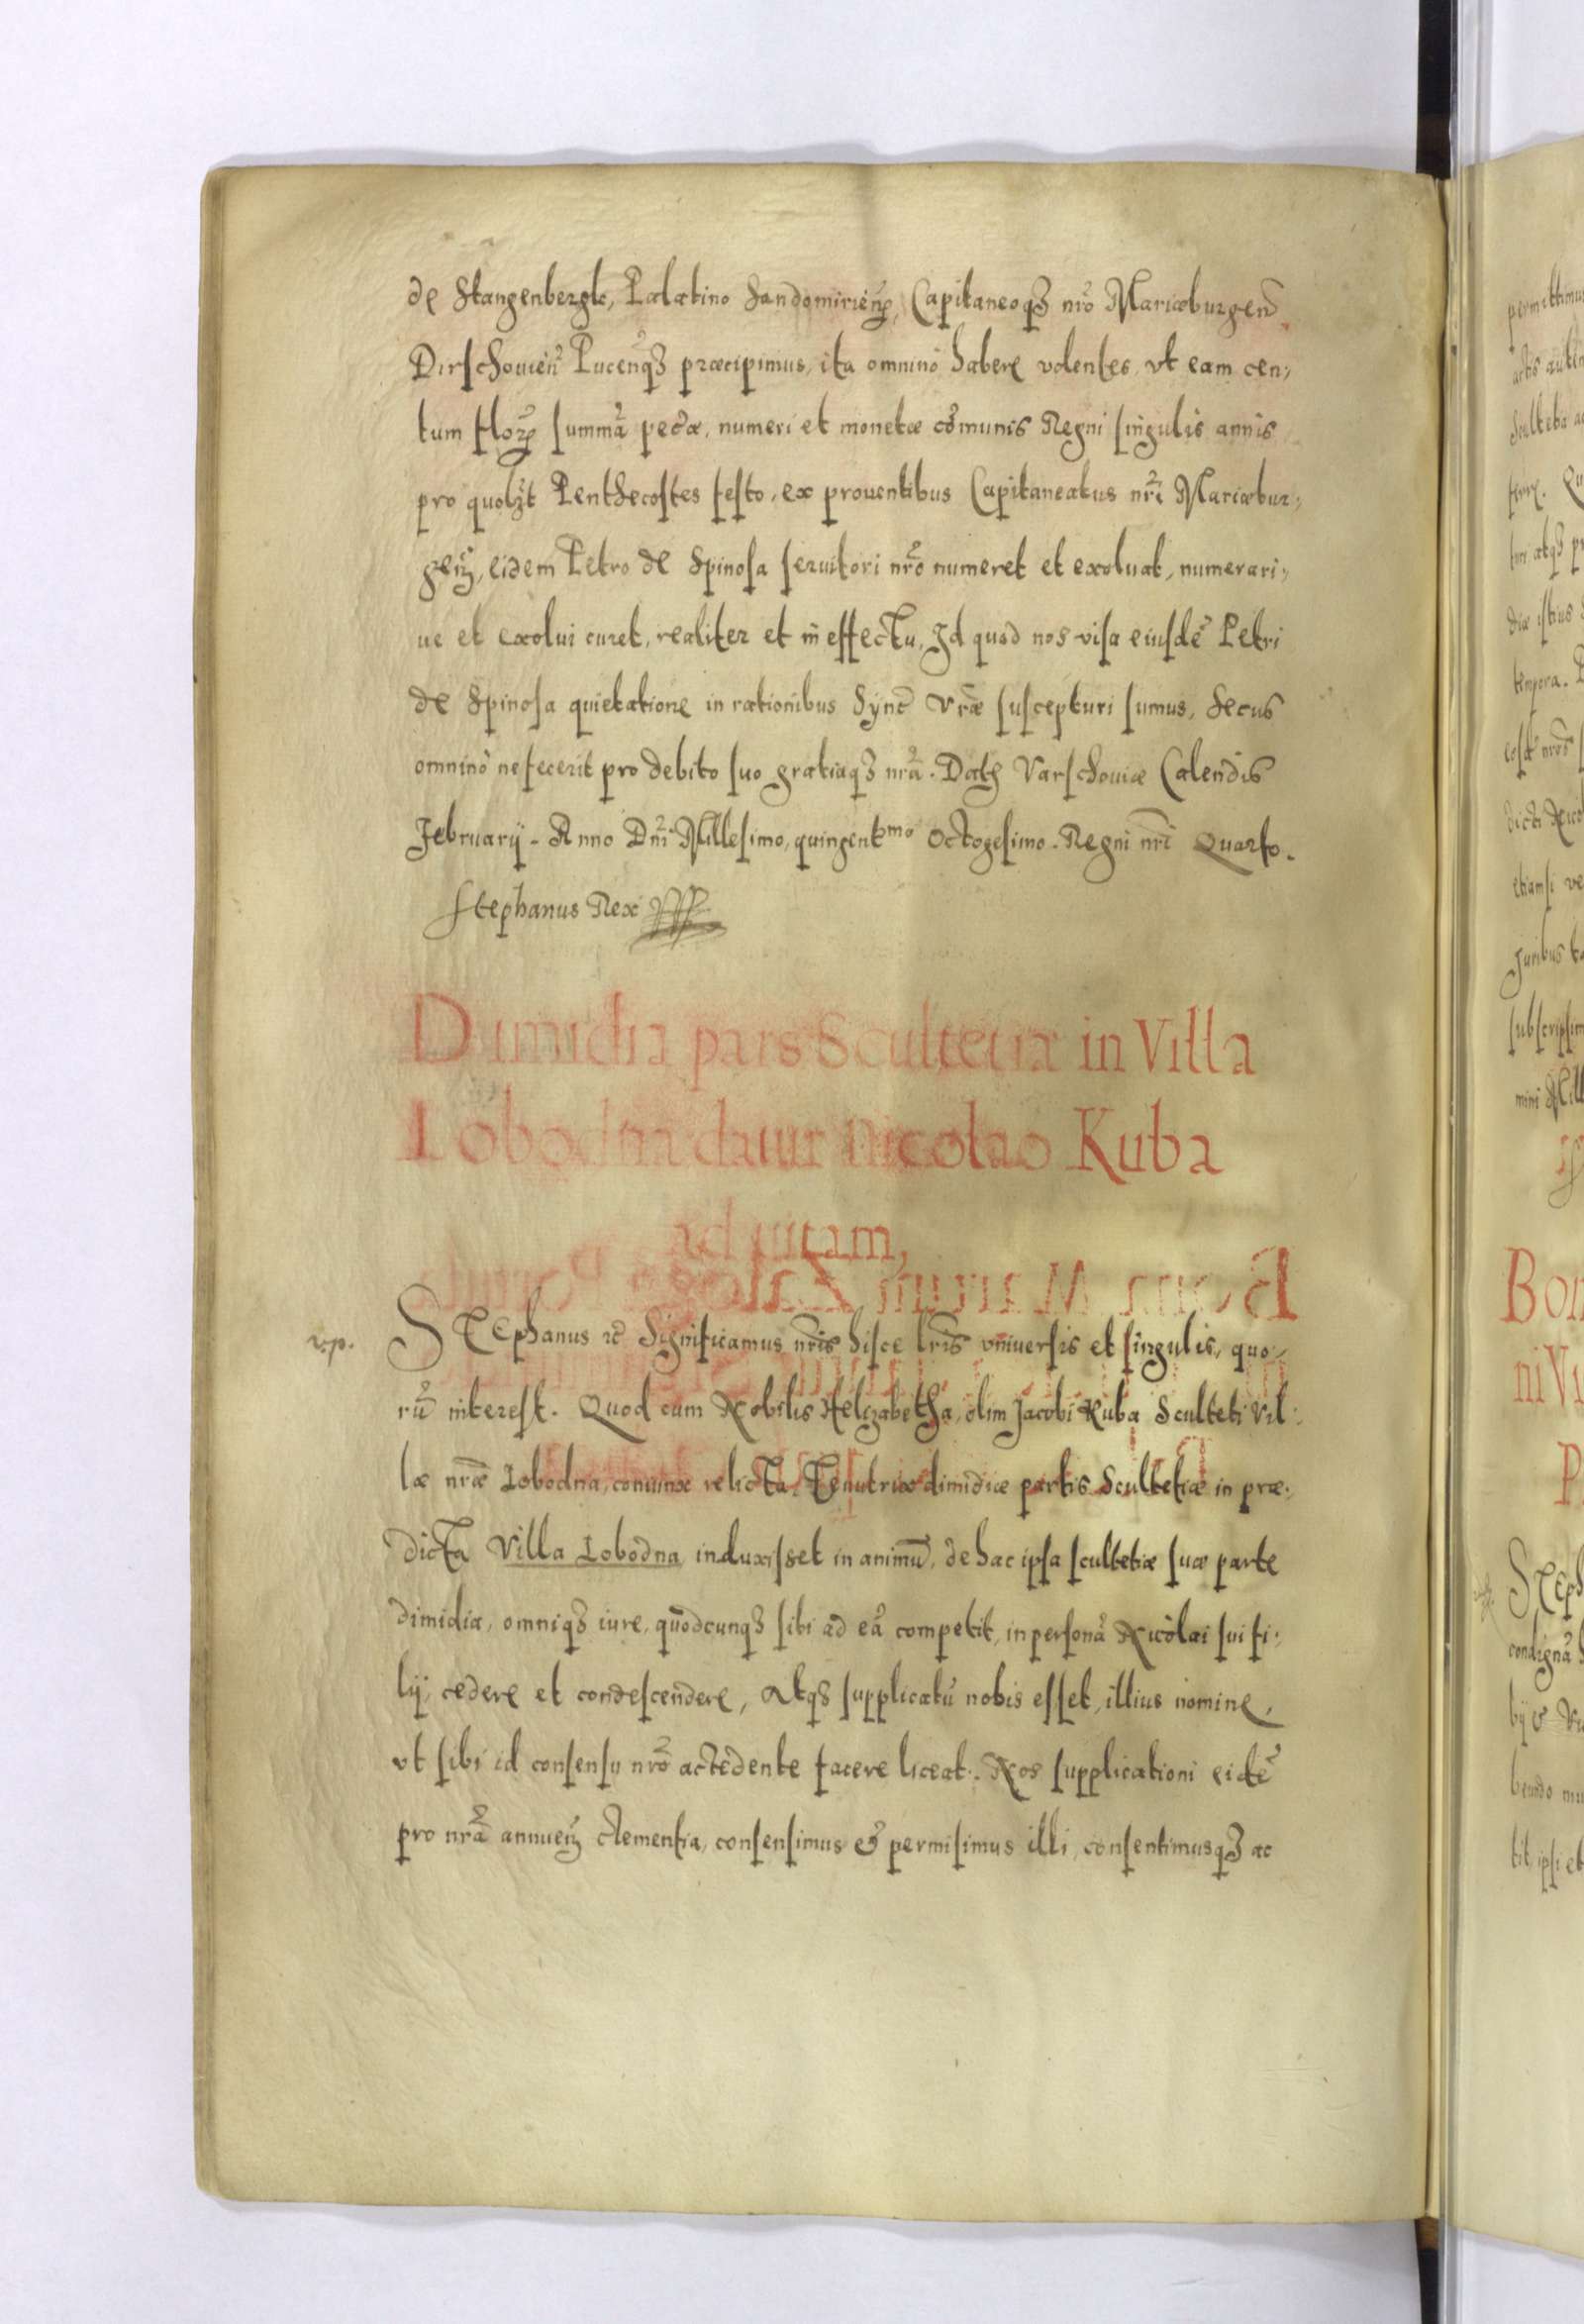 de Stangenbergk, Palatino Sandomirien̄, Capitaneoqꝫ nr̄o Mariæburgen̄
Dirschouien̄ Pucen̄qꝫ præcipimus, ita omnino habere volentes, vt eam cen,
tum floꝝ summā pec̄æ, numeri et monetæ cōmunis Regni singulis annis
pro quolꝫt Penthecostes festo, ex prouentibus Capitaneatus nr̄i Mariæbur,
gen̄, eidem Petro de Spinosa seruitori nr̄o numeret et exoluat, numerari,
ue et exolui curet, realiter et in effectu, Id quod nos visa eiusdē Petri
de Spinosa quietatione in rationibus Sync̄ Vr̄æ suscepturi sumus, Secus
omninò ne fecerit pro debito suo gratiaqꝫ nr̄ā. Datꝫ Varschouiæ Calendis
February. Anno Dn̄i Millesimo, quingentmo Octogesimo. Regni nr̄i Quarto.
Stephanus Rex
Dimidia pars Scultetiæ in Villa
Lobodna datur Nicolao Kuba
ad uitam,
v.p. Stephanus ꝛc̄ Significamus nr̄is hisce lr̄is vniuersis et singulis, quo,
rū interest. Quod cum Nobilis Helizabetha, olim Jacobi Kuba Sculteti Vil,
læ nr̄æ Lobodna, coniunx relicta, Tenutrix dimidiæ partis Scultetiæ in præ,
dicta Villa Lobodna induxisset in animū, de hac ipsa scultetiæ suæ parte
dimidia, omniqꝫ iure, quodcunqꝫ sibi ad eā competit, in personā Nicolai sui fi,
lij, cedere et condescendere, Atqꝫ supplicatū nobis esset, illius nomine,
vt sibi id consensu nr̄o accedente facere liceat. Nos supplicationi eidē
pro nr̄ā annuen̄ clementia, consensimus & permisimus illi, consentimusqꝫ ac